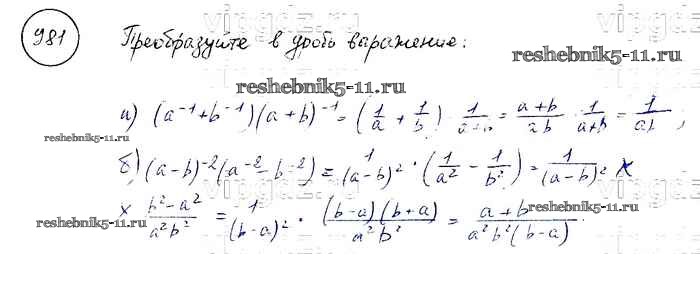 981 Преобразуйте в дробь выражение:
reshebnik5-11.ru
reshebnik5-11.ru
а) (a⁻¹+b⁻¹)(a+b)⁻¹ = (1/a + 1/b) · 1/(a+b) = (a+b)/(ab) · 1/(a+b) = 1/(ab);
reshebnik5-11.ru
б) (a-b)⁻²(a⁻²-b⁻²) = 1/(a-b)² · (1/a² - 1/b²) = 1/(a-b)² ×
reshebnik5-11.ru
× (b²-a²)/(a²b²) = 1/(b-a)² · (b-a)(b+a)/(a²b²) = (a+b)/(a²b²(b-a)).
reshebnik5-11.ru
reshebnik5-11.ru